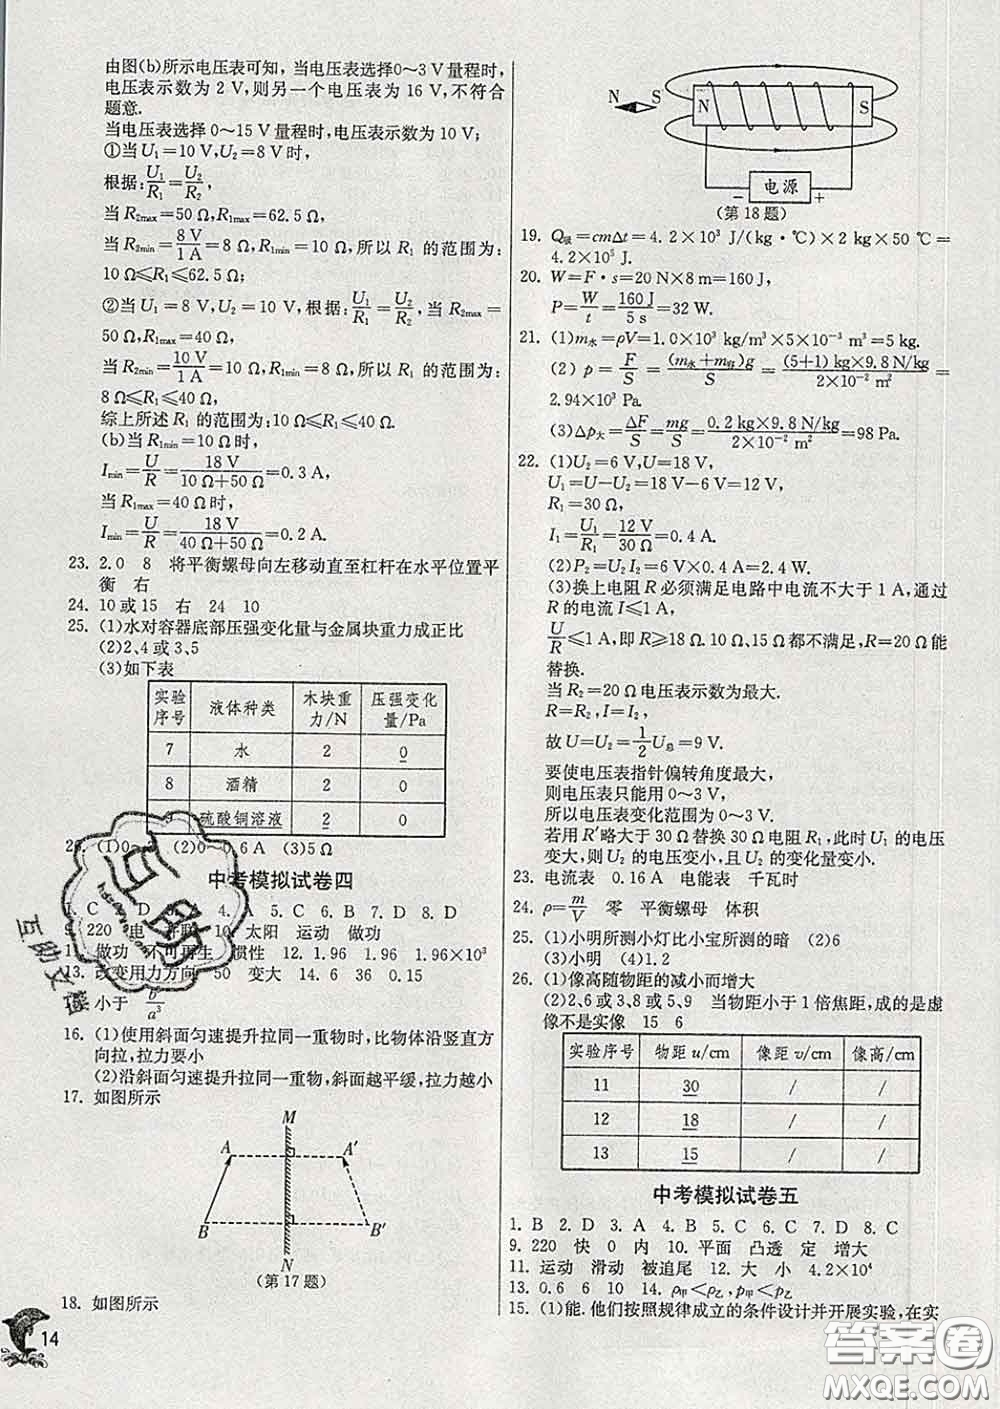 由图(b)所示电压表可知，当电压表选择0～3 V量程时，
电压表示数为 2 V，则另一个电压表为 16 V，不符合
题意.
当电压表选择 0～15 V量程时，电压表示数为 10 V；
①当 U₁=10 V，U₂=8 V时，
根据：U₁/R₁=U₂/R₂，
当 R₂max=50 Ω，R₁max=62.5 Ω；
当 R₂min=8 V/1 A=8 Ω，R₁min=10 Ω，所以 R₁ 的范围为：
10 Ω≤R₁≤62.5 Ω；
②当 U₁=8 V，U₂=10 V，根据：U₁/R₁=U₂/R₂，当 R₂max=
50 Ω，R₁max=40 Ω；
当 R₂min=10 V/1 A=10 Ω，R₁min=8 Ω，所以 R₁ 的范围为：
8 Ω≤R₁≤40 Ω；
综上所述 R₁ 的范围为：10 Ω≤R₁≤40 Ω.
(b)当 R₁min=10 Ω时，
Imin=U/R=18 V/(10 Ω+50 Ω)=0.3 A，
当 R₁max=40 Ω时，
Imin=U/R=18 V/(40 Ω+50 Ω)=0.2 A.
23. 2.0 8 将平衡螺母向左移动直至杠杆在水平位置平
衡 右
24. 10或15 右 24 10
25. (1)水对容器底部压强变化量与金属块重力成正比
(2)2、4或3、5
(3)如下表
实验序号 液体种类 木块重力/N 压强变化量/Pa
7 水 2 0
8 酒精 2 0
硫酸铜溶液 2 0
(2)0～0.6 A (3)5 Ω
中考模拟试卷四
C D 4. A 5. C 6. B 7. D 8. D
9. 220 电 并联 10. 太阳 运动 做功
11. 做功 不可再生 惯性 12. 1.96 1.96 1.96×10³
13. 改变用力方向 50 变大 14. 6 36 0.15
小于 b/a³
16. (1)使用斜面匀速提升拉同一重物时，比物体沿竖直方
向拉，拉力要小
(2)沿斜面匀速提升拉同一重物，斜面越平缓，拉力越小
17. 如图所示
M
A A′
B B′
N
(第17题)
18. 如图所示
14
N S
N S
－ 电源 ＋
(第18题)
19. Q吸=cmΔt=4.2×10³ J/(kg·℃)×2 kg×50 ℃=
4.2×10⁵ J.
20. W=F·s=20 N×8 m=160 J，
P=W/t=160 J/5 s=32 W.
21. (1)m水=ρV=1.0×10³ kg/m³×5×10⁻³ m³=5 kg.
(2) p=F/S=(m水+m容)g/S=(5+1) kg×9.8 N/kg/2×10⁻² m²=
2.94×10³ Pa.
(3)Δp大=ΔF/S=mg/S=0.2 kg×9.8 N/kg/2×10⁻² m²=98 Pa.
22. (1)U₂=6 V，U=18 V，
U₁=U−U₂=18 V−6 V=12 V，
R₁=30 Ω，
I₁=U₁/R₁=12 V/30 Ω=0.4 A.
(2)P₂=U₂I₂=6 V×0.4 A=2.4 W.
(3)换上电阻 R 必须满足电路中电流不大于 1 A，通过
R的电流 I≤1 A，
U/R≤1 A，即 R≥18 Ω. 10 Ω、15 Ω都不满足，R=20 Ω能
替换.
当 R₂=20 Ω电压表示数为最大.
R=R₂，I=I₂，
故U=U₂=½U总=9 V.
要使电压表指针偏转角度最大，
则电压表只能用 0～3 V，
所以电压表变化范围为 0～3 V.
若用R′略大于 30 Ω替换 30 Ω电阻 R₁，此时 U₁ 的电压
变大，则 U₂ 的电压变小，且 U₂ 的变化量变小.
23. 电流表 0.16 A 电能表 千瓦时
24. ρ=m/V 零 平衡螺母 体积
25. (1)小明所测小灯比小宝所测的暗 (2)6
(3)小明 (4)1.2
26. (1)像高随物距的减小而增大
(2)2、6或3、8或5、9 当物距小于1倍焦距，成的是虚
像不是实像 15 6
实验序号 物距 u/cm 像距 v/cm 像高/cm
11 30 / /
12 18 / /
13 15 / /
中考模拟试卷五
1. B 2. D 3. A 4. B 5. C 6. C 7. D 8. C
9. 220 快 0 内 10. 平面 凸透 定 增大
11. 运动 滑动 被追尾 12. 大 小 4.2×10⁴
13. 0.6 6 10 14. ρ甲＜ρ乙，p甲＜p乙
15. (1)能. 他们按照规律成立的条件设计并开展实验，在实
答案圈
MXQE.COM